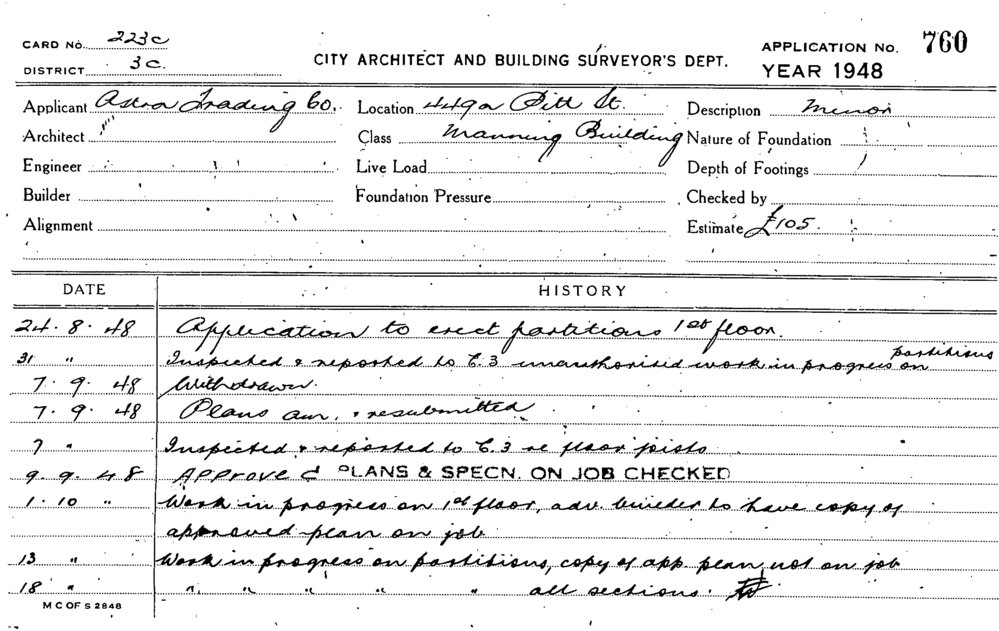 CARD No. 223c
DISTRICT 3c.
CITY ARCHITECT AND BUILDING SURVEYOR'S DEPT.
APPLICATION No. 760
YEAR 1948
Applicant Astra Trading Co. Location 449a Pitt St. Description Minor
Architect " Class Manning Building Nature of Foundation
Engineer Live Load Depth of Footings
Builder Foundation Pressure Checked by
Alignment Estimate £105.
DATE HISTORY
24. 8. 48 Application to erect partitions 1st floor.
31 " Inspected & reported to C.3 unauthorised work in progress on partitions
7. 9. 48 Withdrawn.
7. 9. 48 Plans am. & resubmitted
7 " Inspected & reported to C.3 re floor joists
9. 9. 48 Approved PLANS & SPECN. ON JOB CHECKED
1. 10 " Work in progress on 1st floor, adv. builder to have copy of
approved plan on job
13 " Work in progress on partitions, copy of app. plan, not on job
18 " " " " " " all sections.
M C OF S 2848